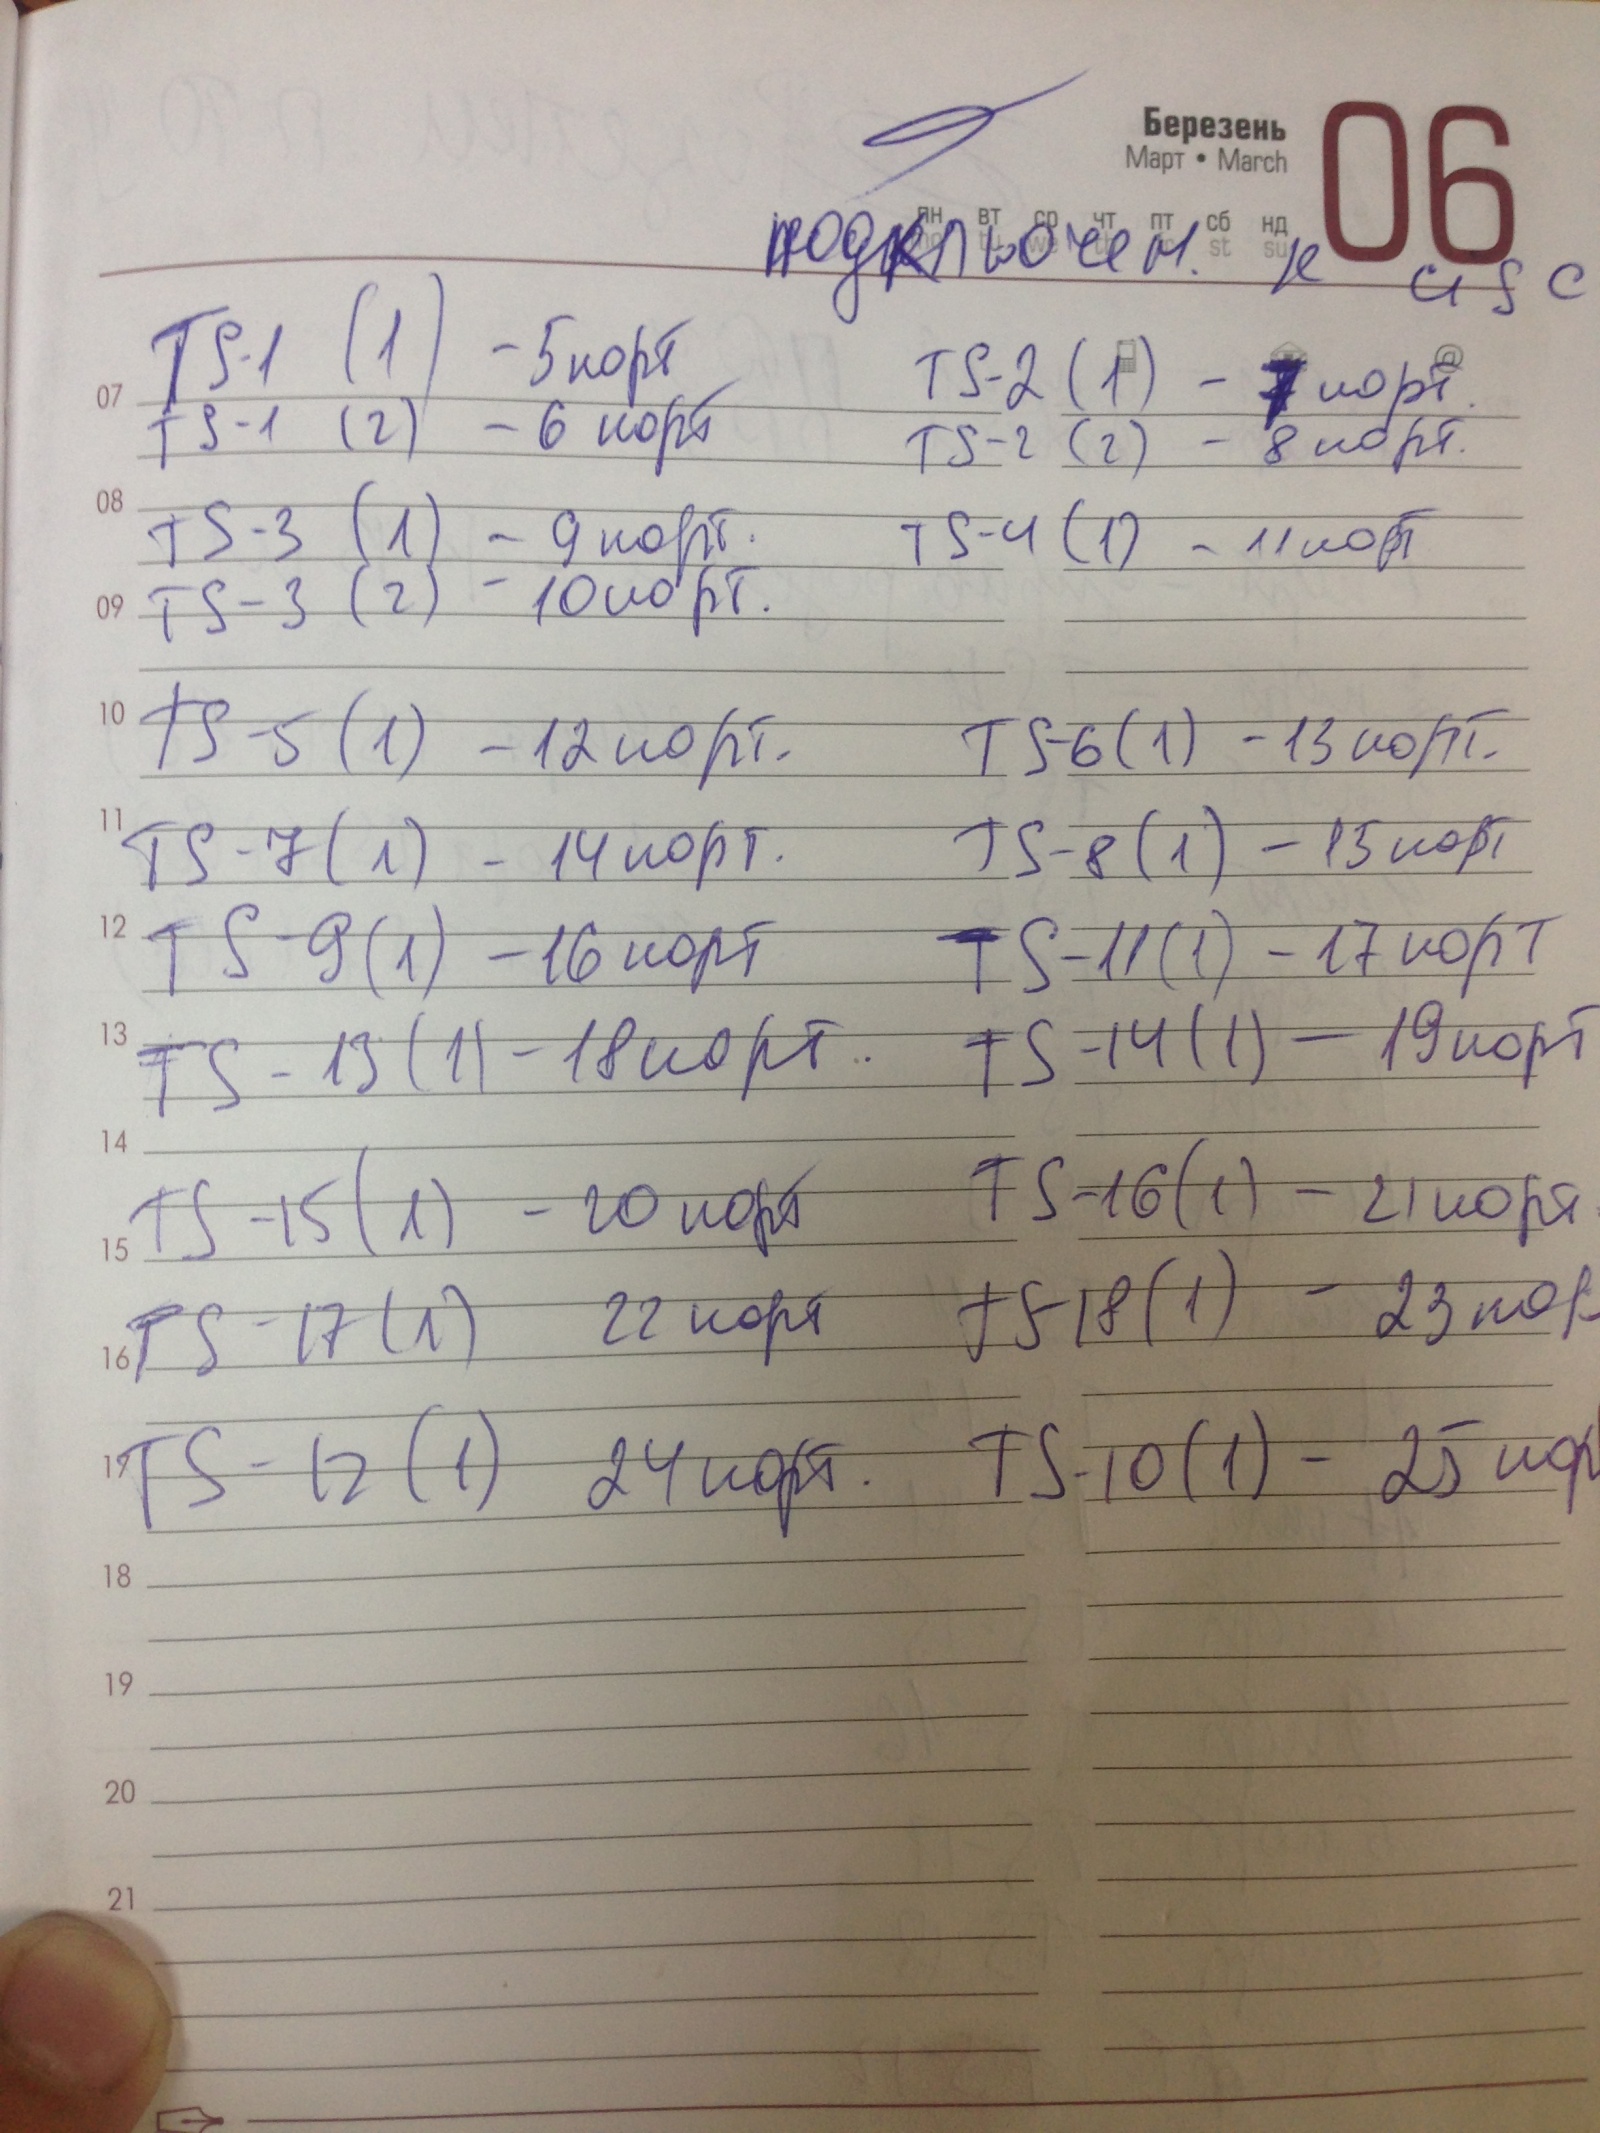 Березень
Март • March
06
пн вт ср чт пт сб нд
подключен. к cisc
TS-1 (1) - 5 порт TS-2 (1) - 7 порт.
07
TS-1 (2) - 6 порт TS-2 (2) - 8 порт.
08
TS-3 (1) - 9 порт. TS-4 (1) - 11 порт
09 TS-3 (2) - 10 порт.
10 TS-5 (1) - 12 порт. TS-6 (1) - 13 порт.
11 TS-7 (1) - 14 порт. TS-8 (1) - 15 порт
12 TS-9 (1) - 16 порт TS-11 (1) - 17 порт
13 TS-13 (1) - 18 порт. TS-14 (1) - 19 порт
14
TS-15 (1) - 20 порт TS-16 (1) - 21 порт.
15
TS-17 (1) 22 порт TS-18 (1) - 23 пор
16
17 TS-12 (1) 24 порт. TS-10 (1) - 25 пор
18
19
20
21